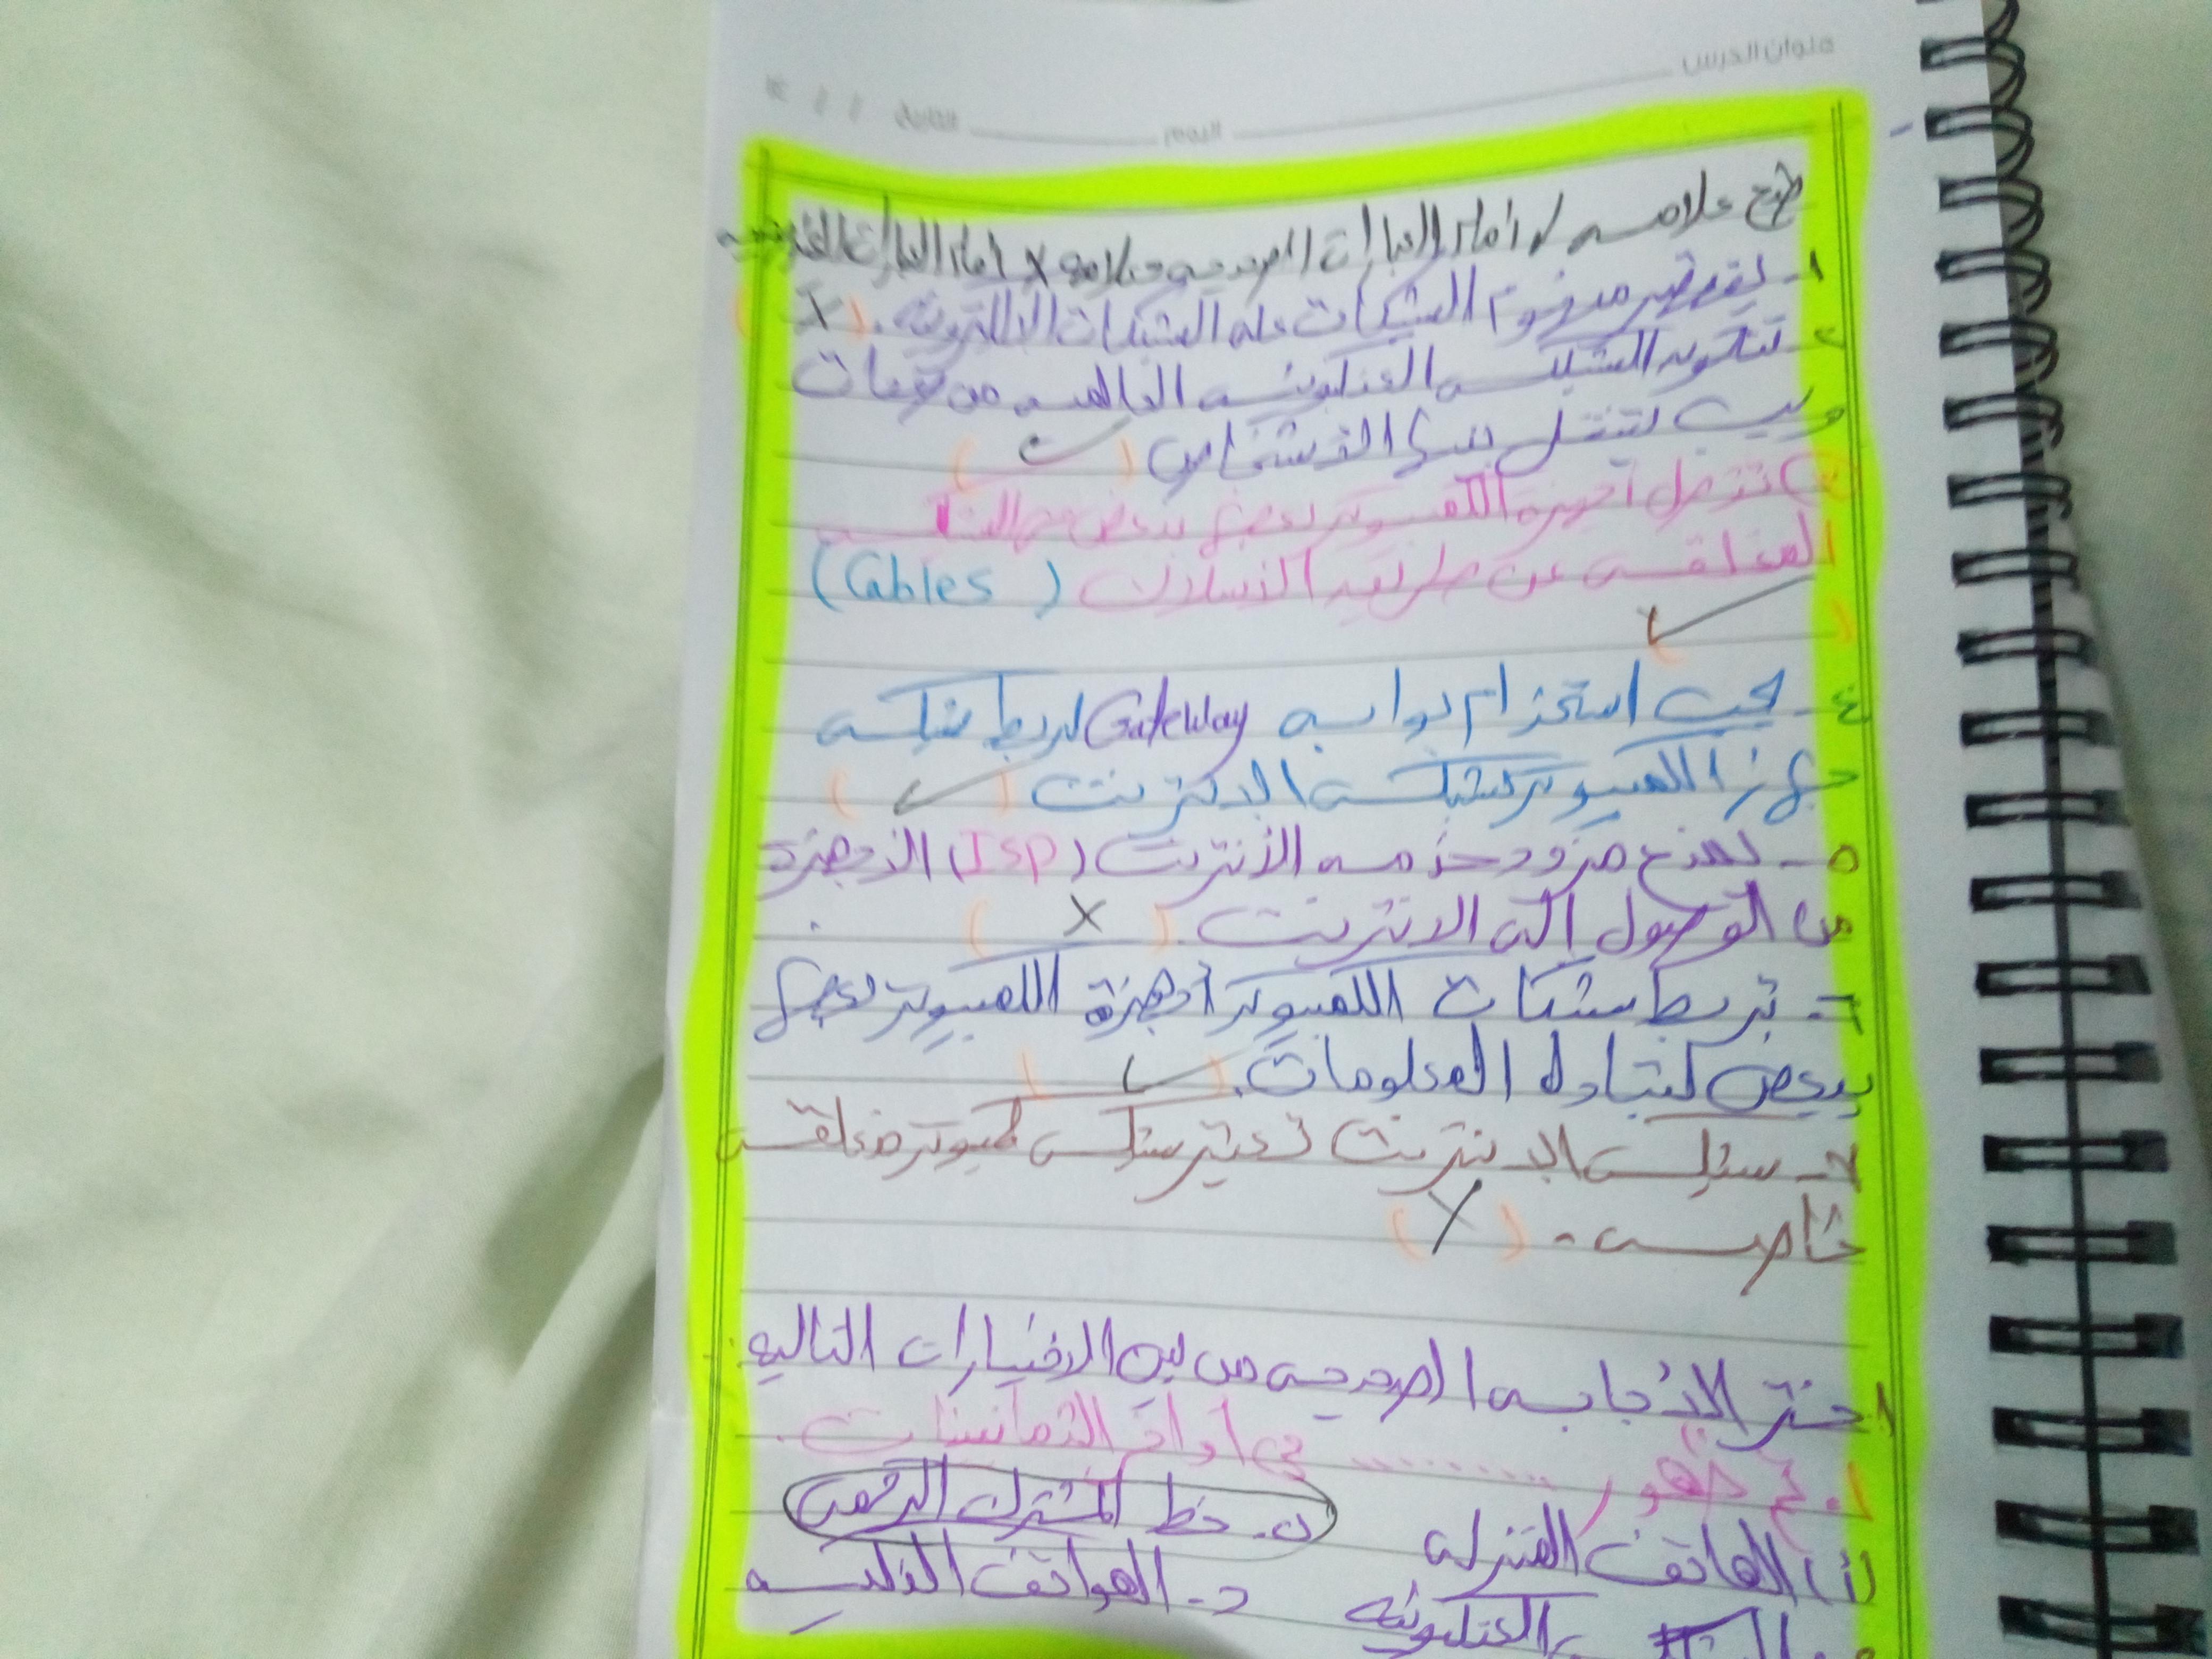 عنوان الدرس
اليوم التاريخ / / ١٤
ضع علامه ✓ أمام العبارات الصحيحه وعلامه X امام العبارات
١- يقتصر مفهوم الشبكات على الشبكات الإلكترونيه. (X)
٢- تتكون الشبكه العنكبوتيه العالميه من
ويب تنتقل بينها الأشخاص (✓)
٣) تتصل أجهزة الكمبيوتر بعضها ببعض في الشبكه
المغلقه عن طريق الأسلاك (Cables)
(✓)
٤- يجب استخدام بوابه GateWay لربط شبكه
جهاز الكمبيوتر بشبكه الانترنت (✓)
٥- يمنع مزود خدمه الأنترنت (ISP) الأجهزة
من الوصول إلى الانترنت. (X)
٦- تربط شبكات الكمبيوتر أجهزة الكمبيوتر بعضها
ببعض لتبادل المعلومات. (✓)
٧- شبكه الانترنت تعتبر شبكه كمبيوتر مغلقه
خاصه. (X)
اختر الإجابه الصحيحه من بين الاختيارات التاليه
١. تم ظهور ......... في اواخر الثمانينات.
أ) الهاتف المنزلى ب. خط المشترك الرقمى
العنكبوتيه د- الهواتف الذكيه